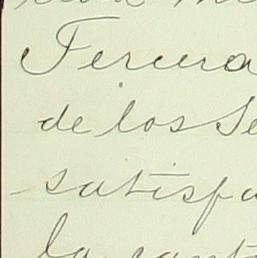 Tercera
de los Se
satisfa
la cant